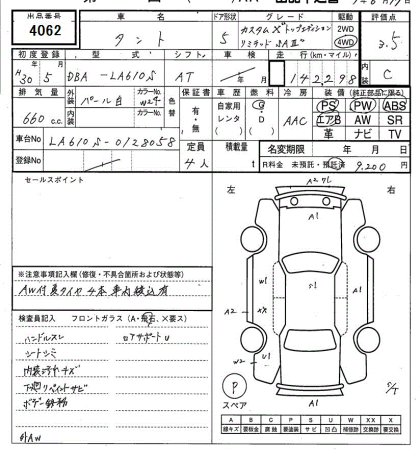 出品番号 車名 ドア形状 グレード 駆動 評価点
4062 タント 5 カスタムX トップエディション リミテッド SAⅢ 2WD 4WD 3.5
初度登録 型式 シフト 車検 走行(km・マイル) 内装
H30 5 DBA-LA610S AT 年 月 142298 C
排気量 外装 カラーNo. 色替 保証書 車歴 燃料 冷房 装備(純正部品に限る)
660 c.c. パール白 W24 有・無 自家用 レンタ G D AAC PS PW ABS
内装 カラーNo. エアB AW SR
革 ナビ TV
車台No LA610S-0128058 定員 積載量 名変期限 年 月 日
登録No 4人 t R料金 未預託・預託済 9,200 円
セールスポイント 左 右
A2 A1
※注意事項記入欄(修復・不具合箇所および状態等)
AW付夏タイヤ4本車内積込有
検査員記入 フロントガラス(A・飛石、×要ス)
ハンドルスレ ロアサポートU
シートシミ
内装コゲキズ
下廻リペイントサビ
ボデー鉄粉
外AW
W1 S1 A1
A2 AX
W2 U1
P
スペア
A1
A B C P S U W XX X
線キズ 要板金 腐蝕 要塗装 サビ 凹凸 補修跡 交換跡 要交換